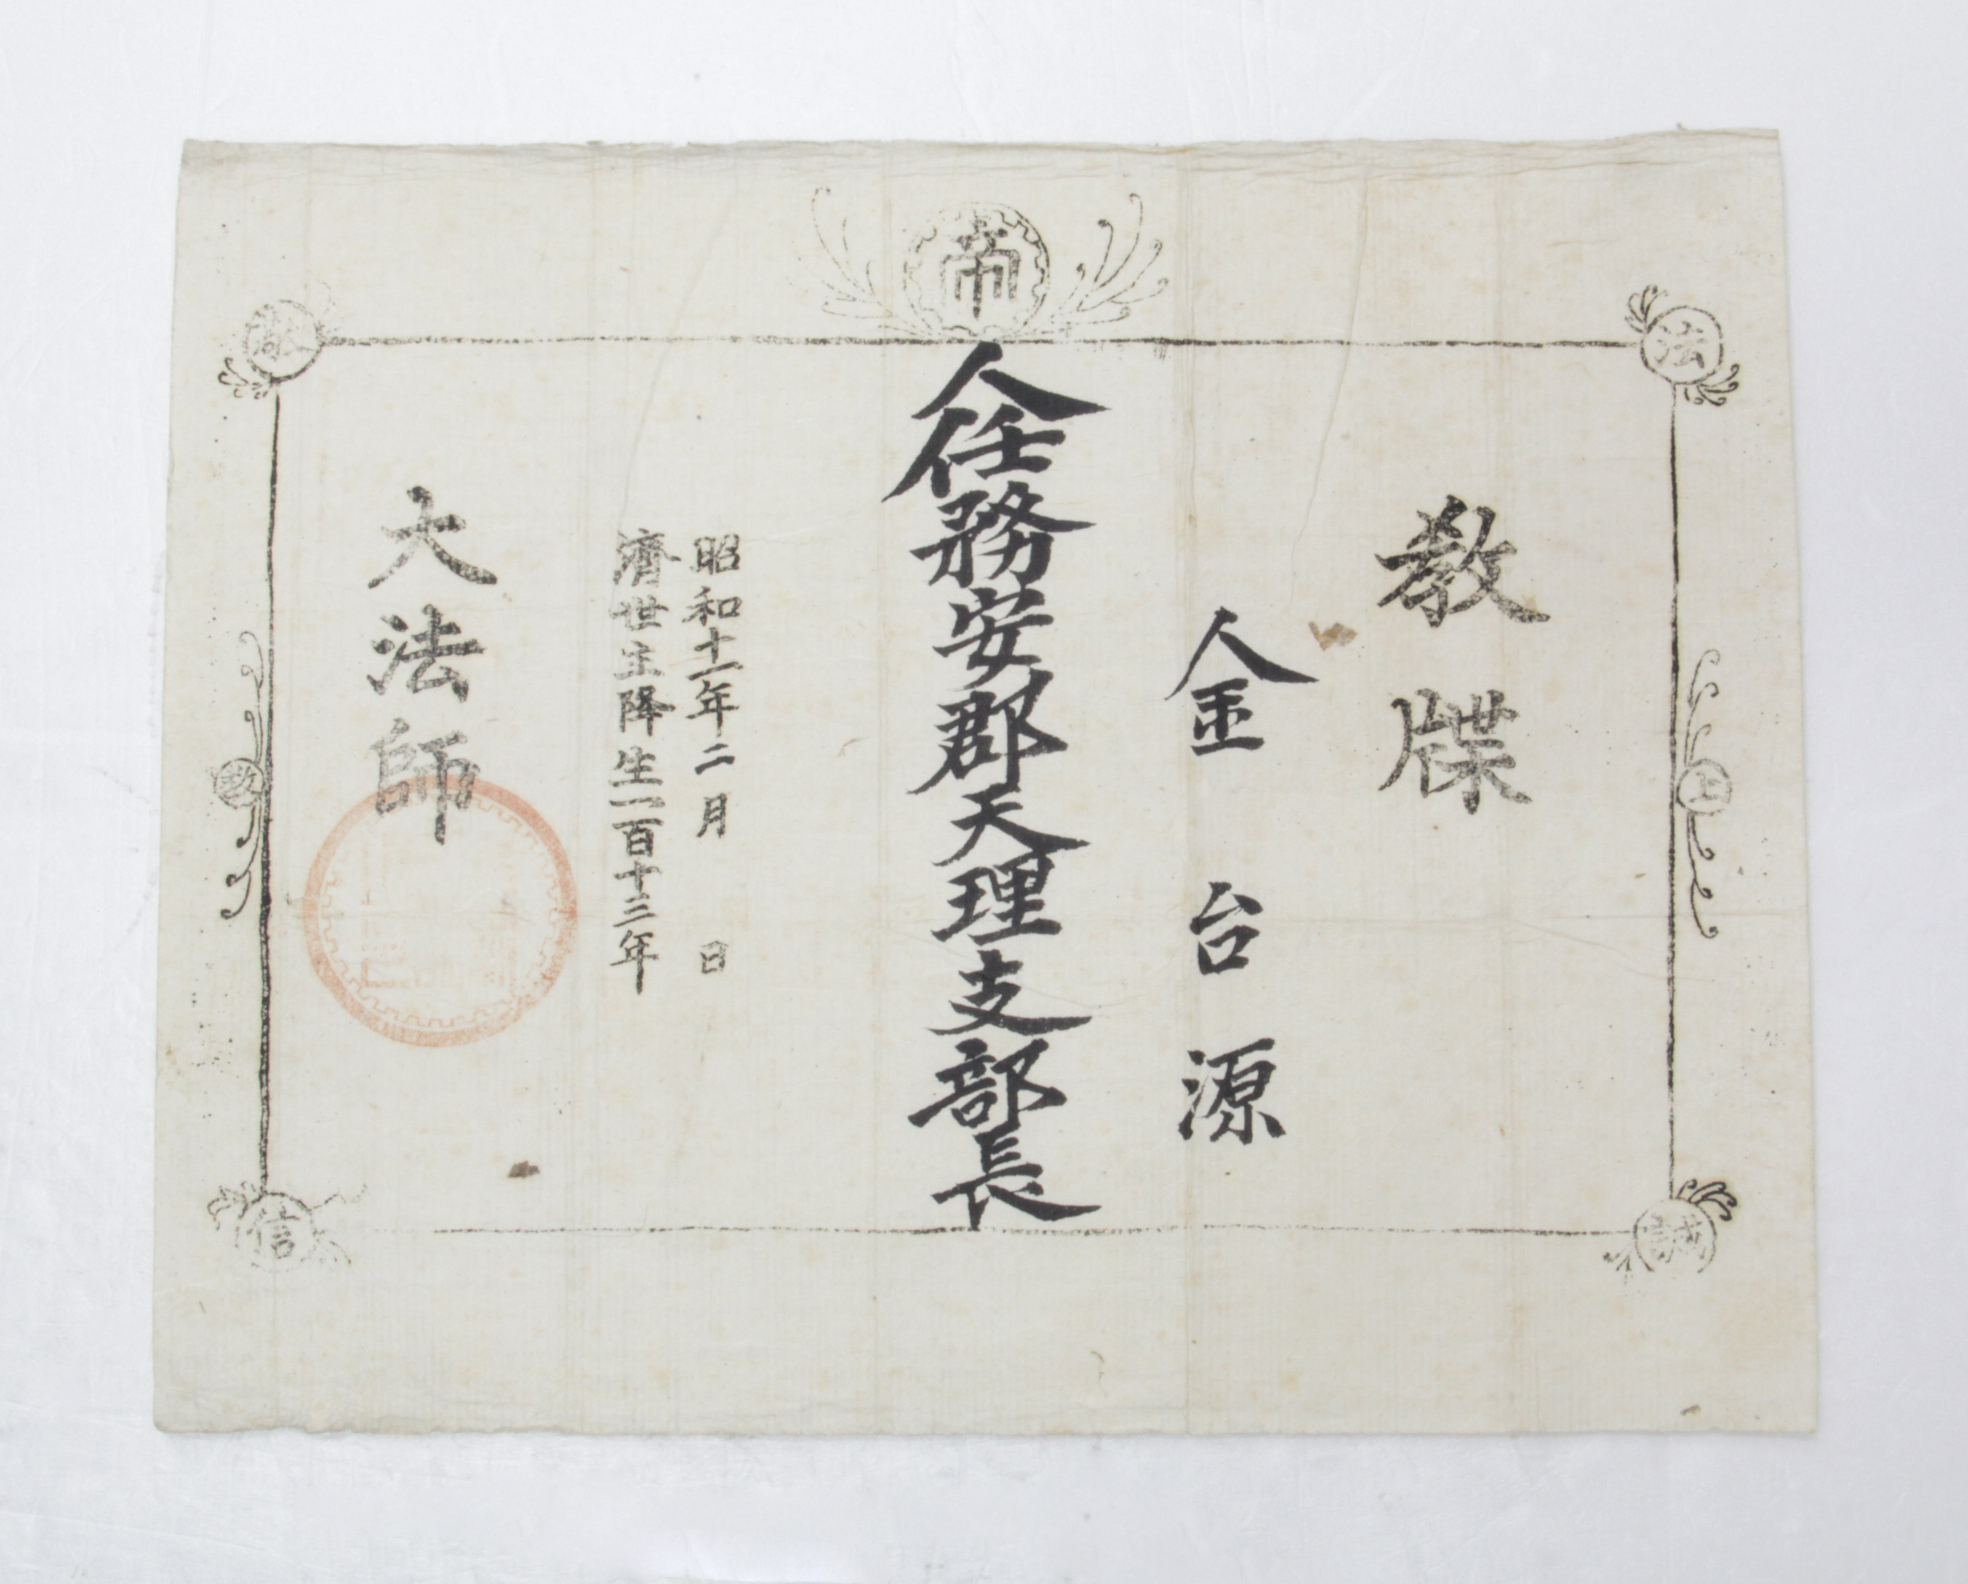 帝
法
誠
教牒
金台源
任務安郡天理支部長
昭和十一年二月　日
濟世主降生一百十三年
大法師
敬
信